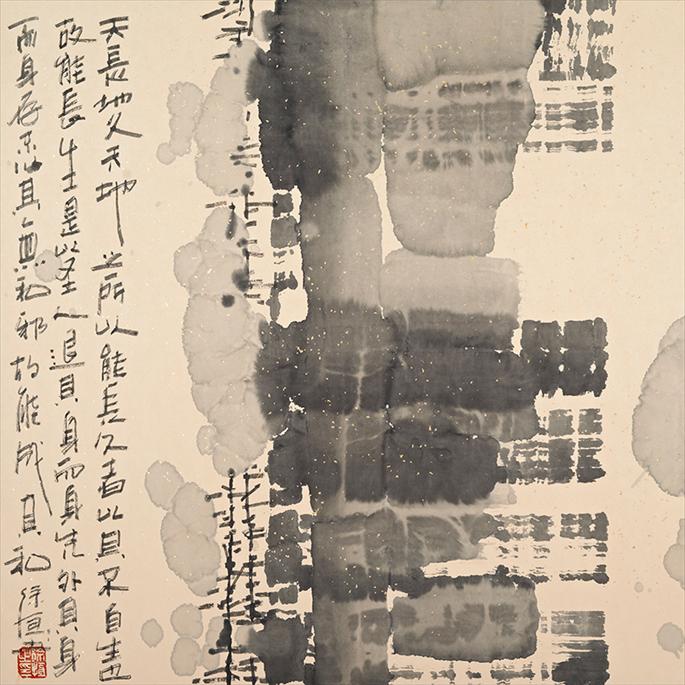 天長地久天地之所以能長久者以其不自生也
故能長生是以圣人退其身而身先外其身
而身存不以其無私邪故能成其私 徐恒